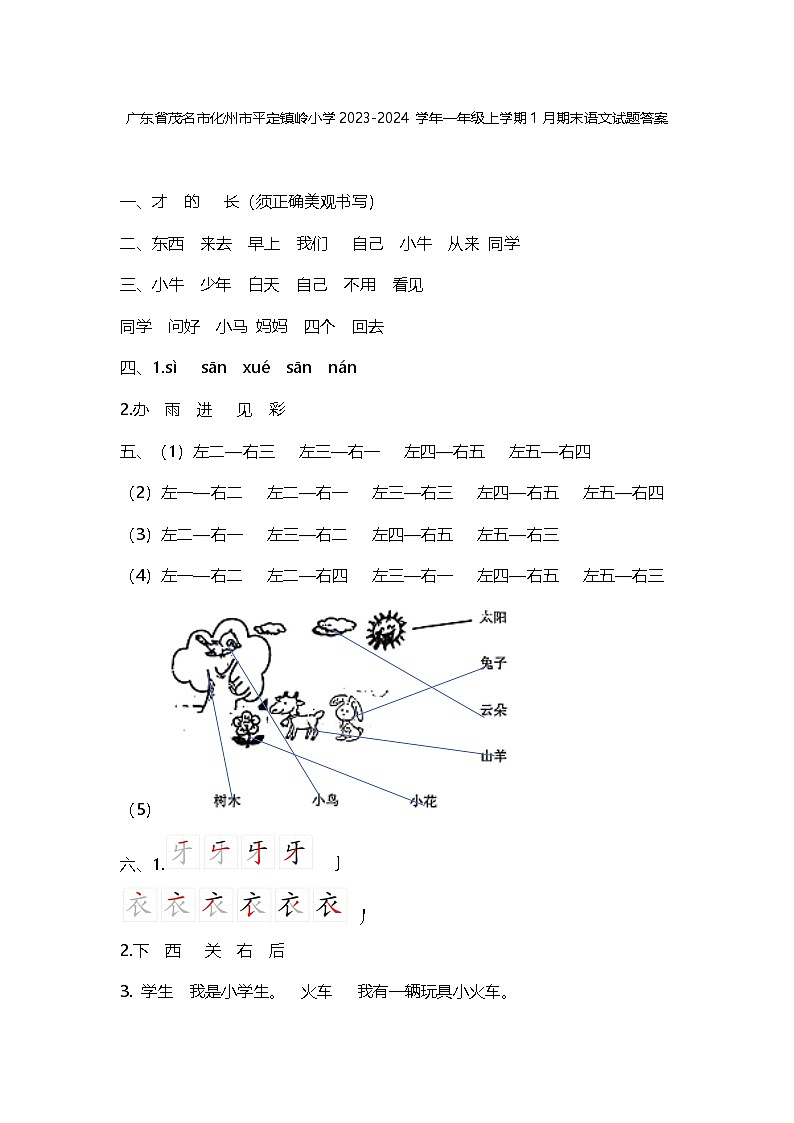 广东省茂名市化州市平定镇岭小学2023-2024 学年一年级上学期1月期末语文试题答案
一、才 的 长（须正确美观书写）
二、东西 来去 早上 我们 自己 小牛 从来 同学
三、小牛 少年 白天 自己 不用 看见
同学 问好 小马 妈妈 四个 回去
四、1.sì sān xué sān nán
2.办 雨 进 见 彩
五、（1）左二—右三 左三—右一 左四—右五 左五—右四
（2）左一—右二 左二—右一 左三—右三 左四—右五 左五—右四
（3）左二—右一 左三—右二 左四—右五 左五—右三
（4）左一—右二 左二—右四 左三—右一 左四—右五 左五—右三
太阳
兔子
云朵
山羊
（5） 树木 小鸟 小花
六、1.牙 牙 牙 牙 亅
衣 衣 衣 衣 衣 衣 丿
2.下 西 关 右 后
3. 学生 我是小学生。 火车 我有一辆玩具小火车。